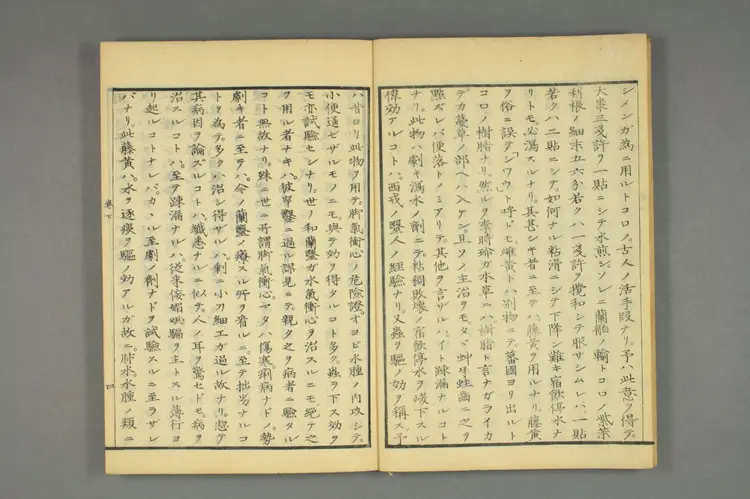 シメンガ為ニ用ルトコロノ。古人ノ活手段ナリ。予ハ此意ヲ得テ。
大棗三戔許ヲ一貼ニシテ水煎シ。ソレニ蘭舶ノ輸トコロノ。葯
刺根ノ細末五六分若クハ一戔許ヲ攪和シテ服サシムレバ。一貼
若クハ二貼ニシテ。如何ナル粘滑ニシテ下降シ難キ宿飲停水ナ
リトモ。必瀉スルナリ。其甚シキ者ニ至テハ。藤黄ヲ用ルナリ。藤黄
ヲ俗ニ誤テシワウト呼ドモ雌黄トハ別物ニテ。蕃國ヨリ出ルト
コロノ樹脂ナリ。然ルヲ李時珍ガ水草ニハ樹脂ト言ナガライカ
デカ蔓草ノ部ヘハ入ケン。且ソノ主治ヲモタヾ蚛牙蛀齒ニ之ヲ
點ズレバ便落トノミアリテ。其他ヲ言ザルハ。イト疎漏ナルコト
ナリ。此物ハ劇キ瀉水ノ劑ニテ。粘稠敗壊ノ宿飲停水ヲ峻下スル
偉効アルコトハ。西戎ノ醫人ノ経驗ナリ。又蟲ヲ驅ノ効ヲ稱ス。予
ハ昔ヨリ此物ヲ用テ。脚氣衝心ノ危險證。オヨビ水腫ノ内攻シテ。
小便通ゼザルモノニモ。與テ効ヲ得タルコト多ク。蟲ヲ下ス効ヲ
モ亦試驗セシナリ。世ノ和蘭醫ガ水氣衝心ヲ治スルニモ絶テ之
ヲ用ル者ナキハ。彼軍醫ニ過ル謬見ニテ。親タ之ヲ病者ニ驗タル
コト無故ナリ。殊ニ世ニ所謂脚氣衝心。マタハ傷寒。痢病ナドノ。勢
劇キ者ニ至テハ。今ノ蘭醫ノ療スル所ヲ看ルニ。至テ拙劣ナルコ
トヲ為テ。多クハ治シ得ザルハ。剰ニ小刀細工ガ過ル故ナリ。惣テ
其病因ヲ論ズルコトハ。纎悉ナルニ似テ。人ノ耳ヲ驚セドモ。病ヲ
治スルコトハ。至テ疎漏ナルハ。従来俊媚眺騙ヲ主トスル薄行ヨ
リ起ルコトナレバ。カヽル至劇ノ劑ナドヲ試驗スルニ至ラザレ
バナリ。此藤黄ハ。水ヲ逐痰ヲ驅ノ効アルガ故ニ。肺水。水腫ノ類ニ
巻下
四